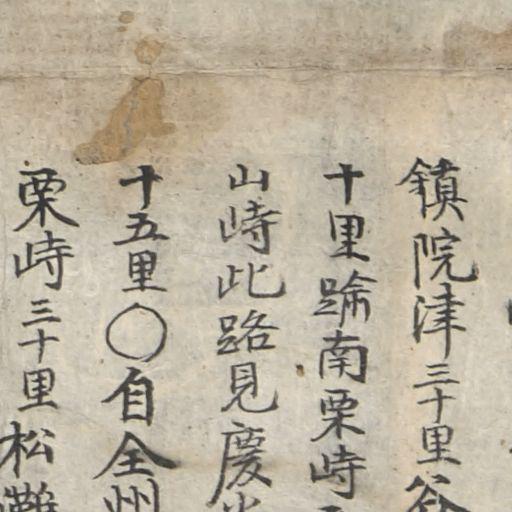 鎮院津三十里
十里踰南栗峙
山峙此路見慶
十五里〇自全州
栗峙三十里松灘